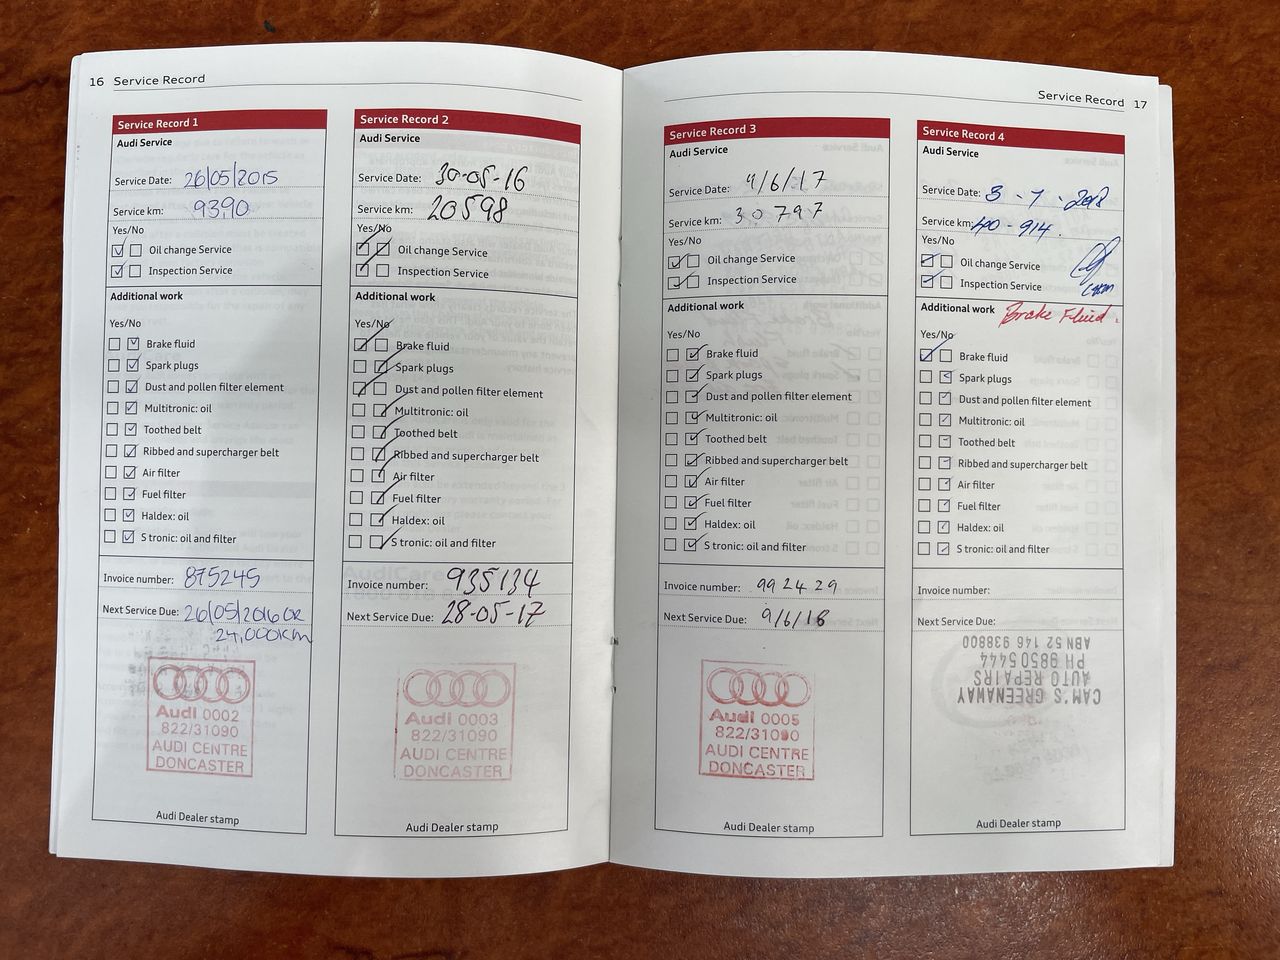 16 Service Record
Service Record 1
Audi Service
Service Date: 26/05/2015
Service km: 9390
Yes/No
Oil change Service
Inspection Service
Additional work
Yes/No
Brake fluid
Spark plugs
Dust and pollen filter element
Multitronic: oil
Toothed belt
Ribbed and supercharger belt
Air filter
Fuel filter
Haldex: oil
S tronic: oil and filter
Invoice number: 875245
Next Service Due: 26/05/2016 OR
24,000km
Audi 0002
822/31090
AUDI CENTRE
DONCASTER
Audi Dealer stamp
Service Record 2
Audi Service
Service Date: 30-05-16
Service km: 20598
Yes/No
Oil change Service
Inspection Service
Additional work
Yes/No
Brake fluid
Spark plugs
Dust and pollen filter element
Multitronic: oil
Toothed belt
Ribbed and supercharger belt
Air filter
Fuel filter
Haldex: oil
S tronic: oil and filter
Invoice number: 935134
Next Service Due: 28-05-17
Audi 0003
822/31090
AUDI CENTRE
DONCASTER
Audi Dealer stamp
Service Record 17
Service Record 3
Audi Service
Service Date: 9/6/17
Service km: 30797
Yes/No
Oil change Service
Inspection Service
Additional work
Yes/No
Brake fluid
Spark plugs
Dust and pollen filter element
Multitronic: oil
Toothed belt
Ribbed and supercharger belt
Air filter
Fuel filter
Haldex: oil
S tronic: oil and filter
Invoice number: 992429
Next Service Due: 9/6/18
Audi 0005
822/31090
AUDI CENTRE
DONCASTER
Audi Dealer stamp
Service Record 4
Audi Service
Service Date: 3-7-2018
Service km: 40-914.
Yes/No
Oil change Service
Inspection Service
Additional work Brake Fluid.
Yes/No
Brake fluid
Spark plugs
Dust and pollen filter element
Multitronic: oil
Toothed belt
Ribbed and supercharger belt
Air filter
Fuel filter
Haldex: oil
S tronic: oil and filter
Invoice number:
Next Service Due:
CAM'S GREENAWAY
AUTO REPAIRS
PH 98505444
ABN 52 146 938800
Audi Dealer stamp